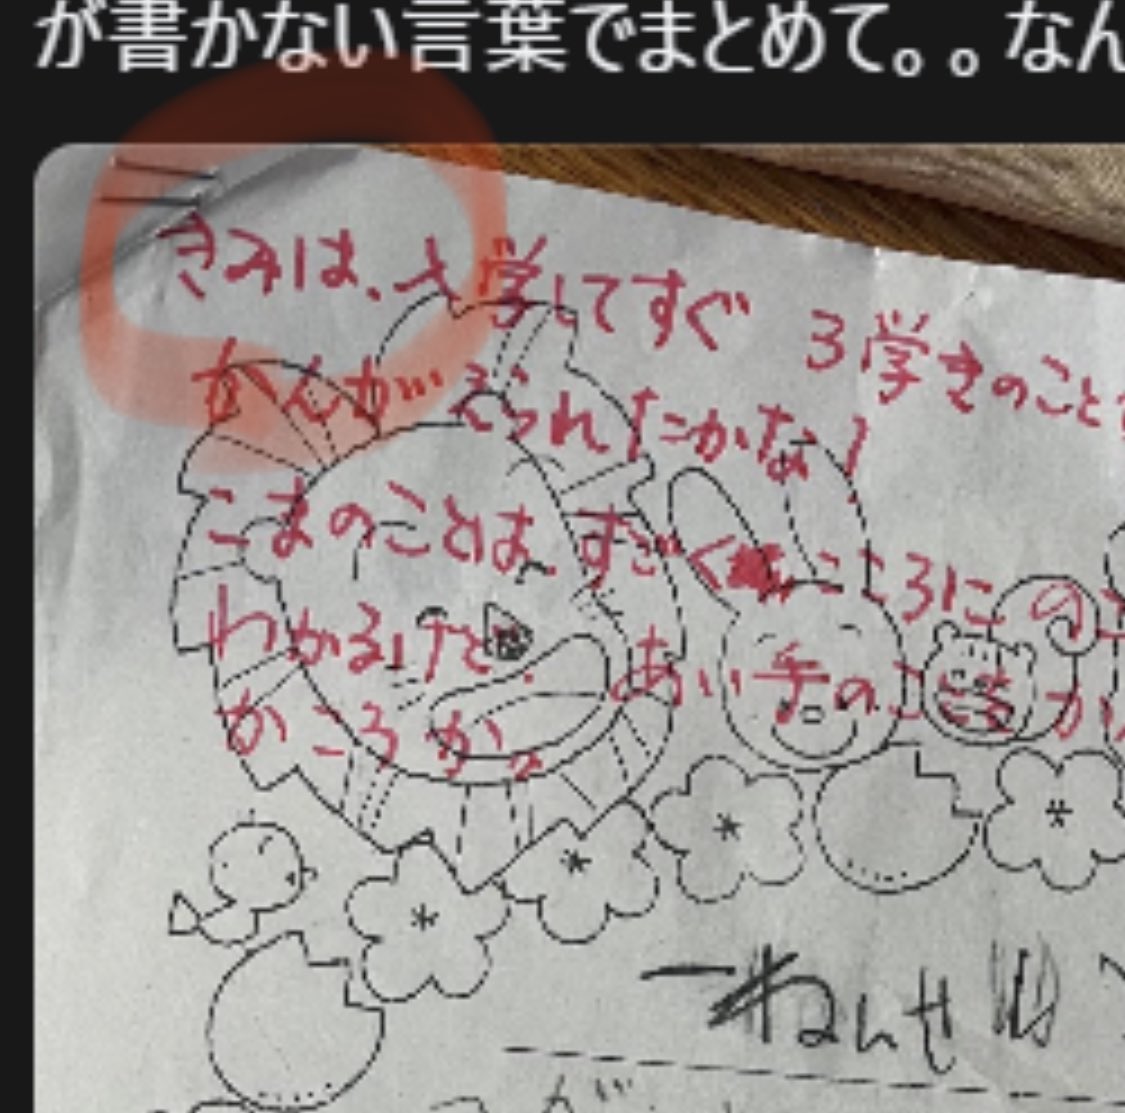 が書かない言葉でまとめて。。なん
きみは、入学してすぐ 3学きのこと
かんがえられたかな?
こまのことは、すごくこころにのこ
わかるけど、あい手のこころが
かころか。
一ねんせい